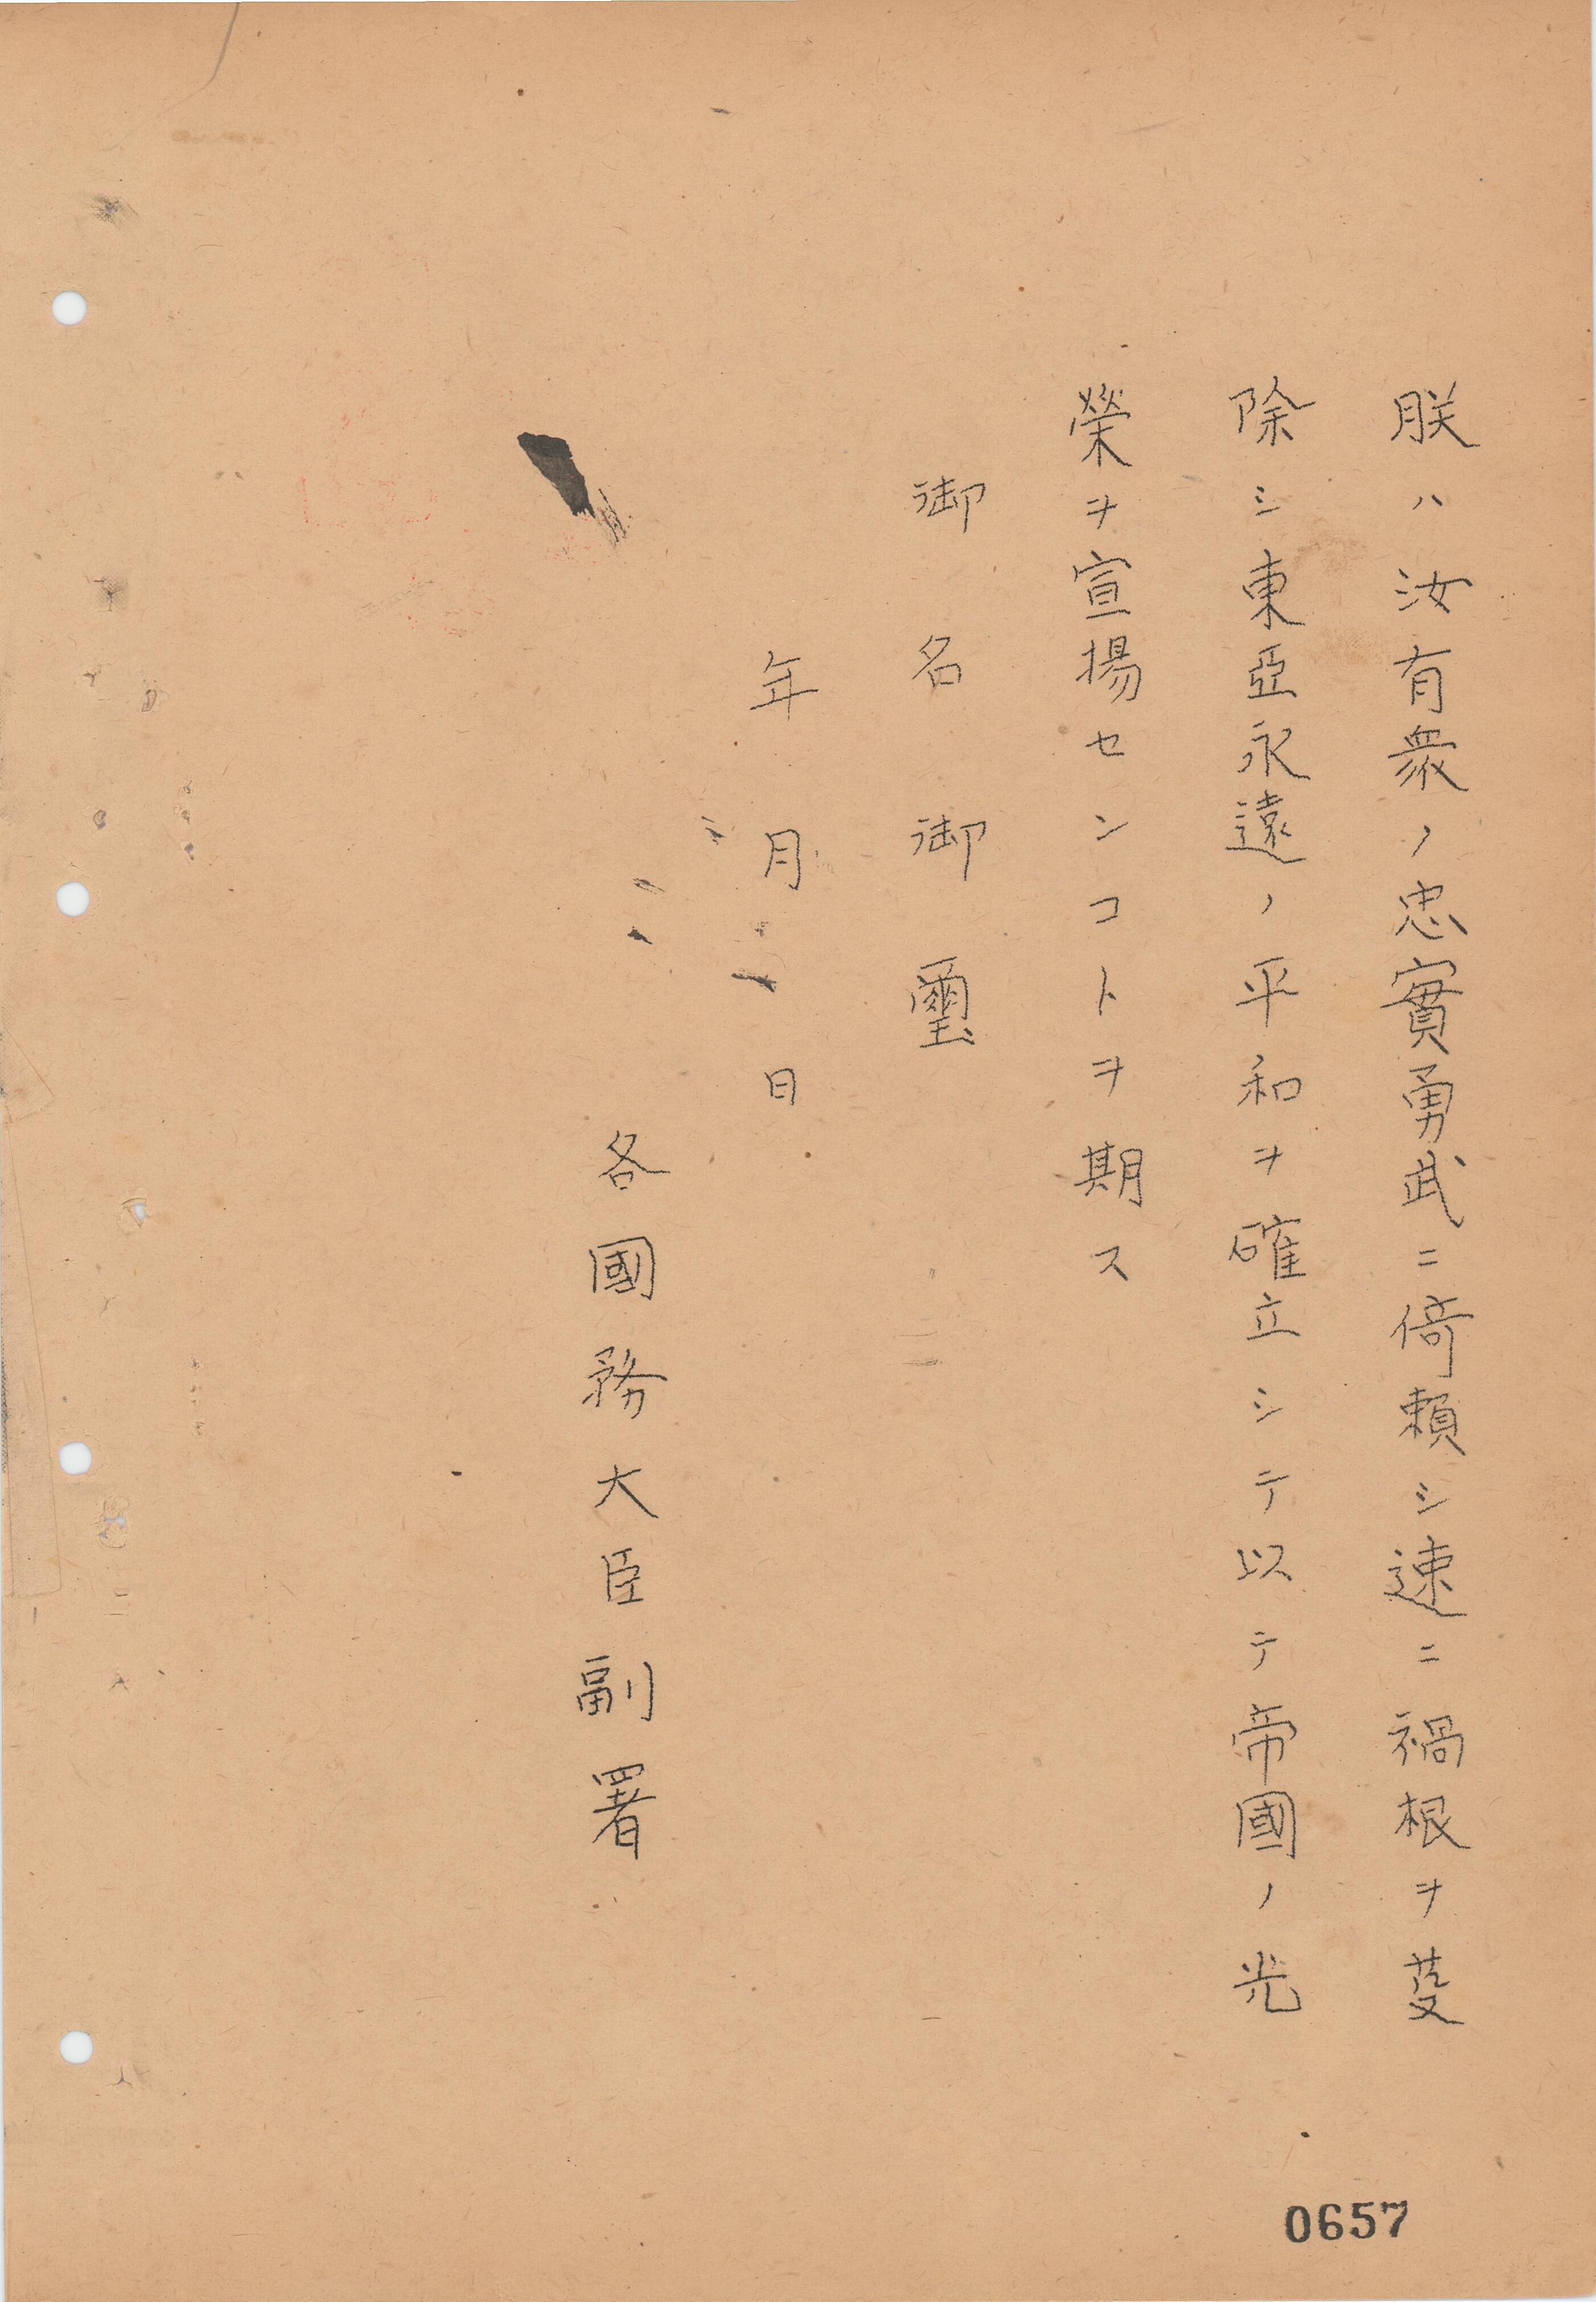 朕ハ汝有衆ノ忠實勇武ニ倚賴シ速ニ禍根ヲ芟
除シ東亞永遠ノ平和ヲ確立シテ以テ帝國ノ光
榮ヲ宣揚センコトヲ期ス
御名御璽
年月日
各國務大臣副署
0657